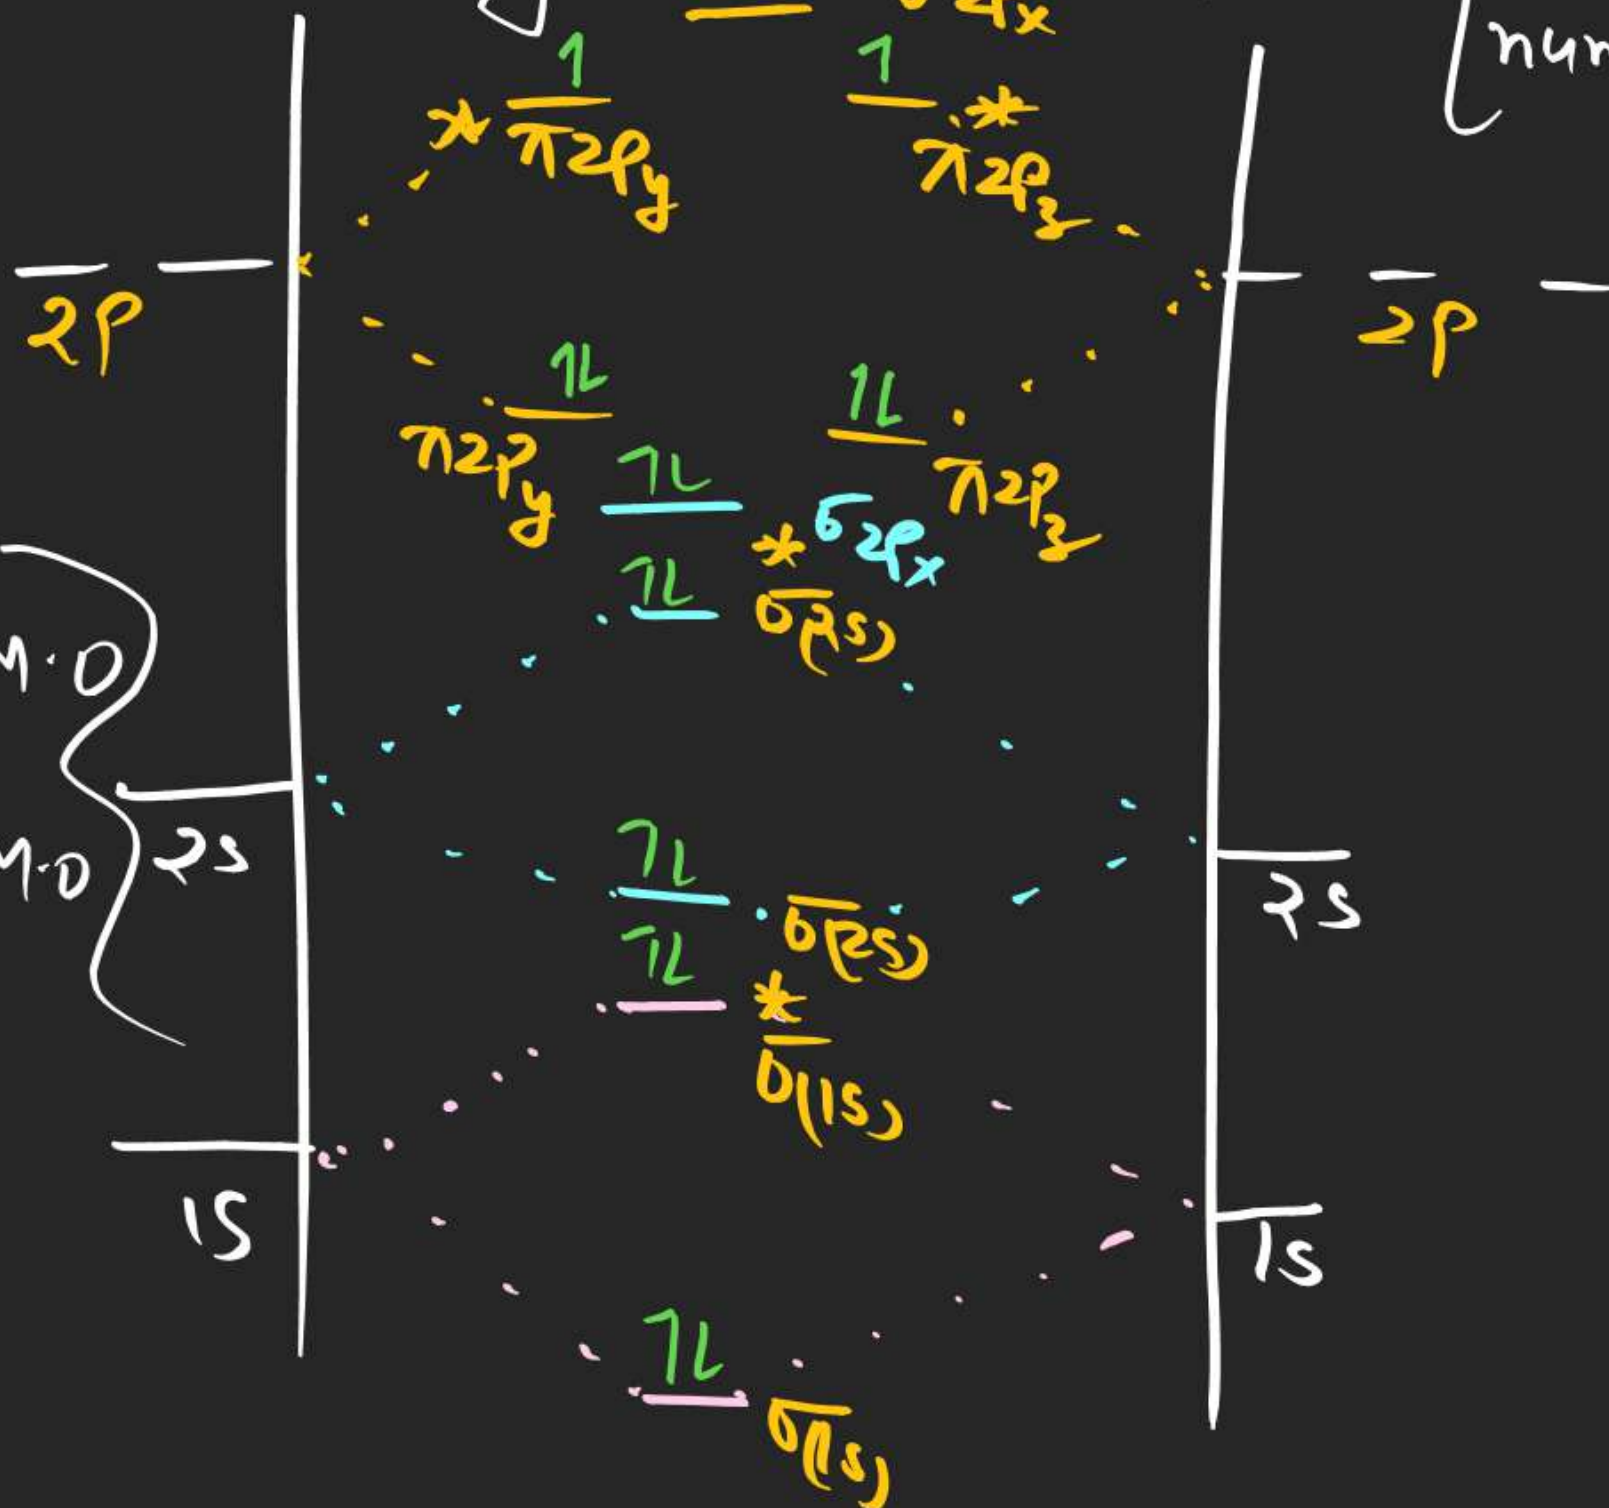 1 1
* π2py * π2pz
2p 2p
1L 1L
π2py π2pz
1L
σ2px
1L * σ(2s)
M.O
M.O
2s 2s
1L
σ(2s)
1L * σ(1s)
1s 1s
1L
σ(1s)